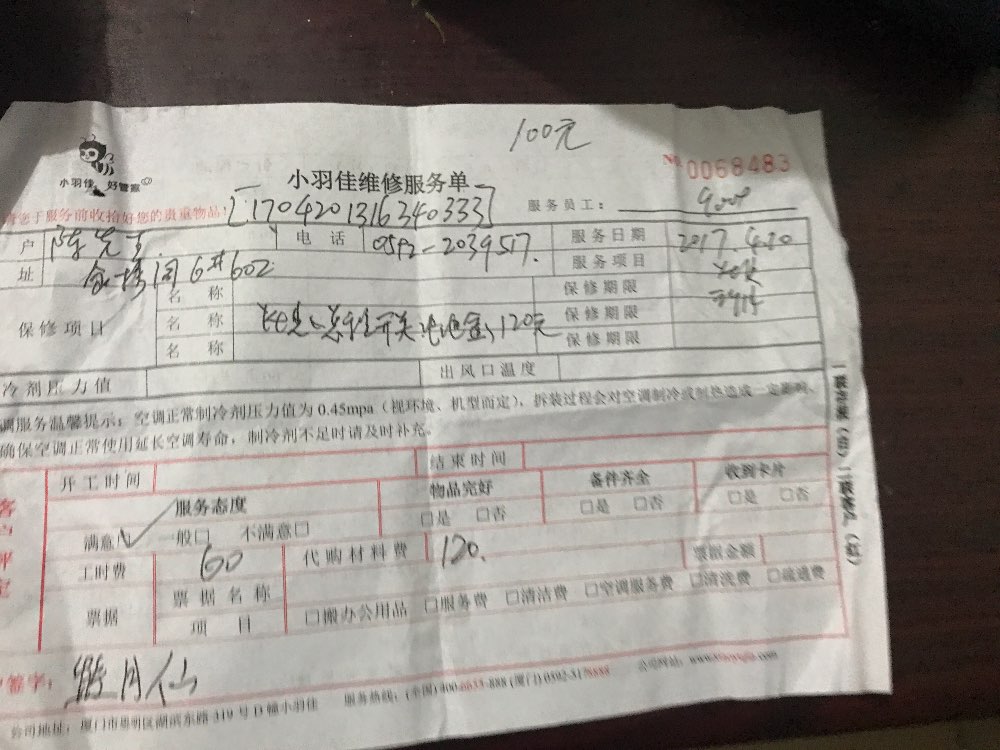 100元
小羽佳 好管家
小羽佳维修服务单
No 0068483
请您于服务前收拾好您的贵重物品!
[1704201316340333]
服务员工:
户 陈先生 电话 0592-2039517. 服务日期 2017.4.20
址 6#602 服务项目
保修项目
名称 保修期限
名称 开关 120元 保修期限
名称 保修期限
冷剂压力值 出风口温度
调服务温馨提示:空调正常制冷剂压力值为0.45mpa(视环境、机型而定),拆装过程会对空调制冷或制热造成一定影响,
确保空调正常使用延长空调寿命,制冷剂不足时请及时补充。
一联存根(白)二联客户(红)
客户评定
开工时间 结束时间
服务态度 物品完好 备件齐全 收到卡片
满意□ 一般□ 不满意□ □是 □否 □是 □否 □是 □否
工时费 60 代购材料费 120. 票据金额
票据 票据名称
项目 □搬办公用品 □服务费 □清洁费 □空调服务费 □清洗费 □疏通费
签字:
公司地址:厦门市思明区湖滨东路319号D幢小羽佳 服务热线:(全国)400-6655-888 (厦门)0592-5178888 公司网站:www.xiaoyujia.com